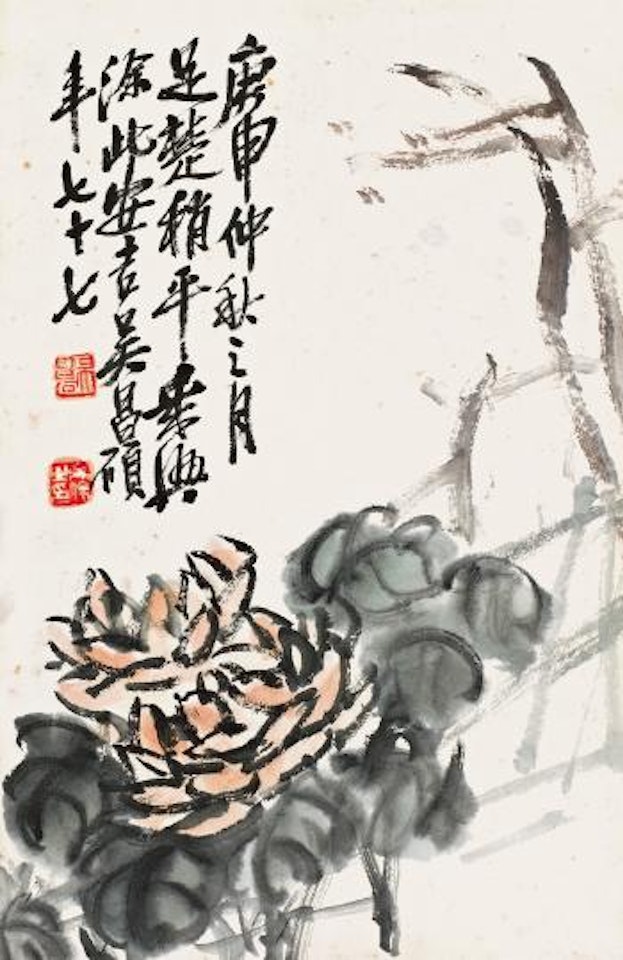 庚申仲秋之月
足楚稍平乘興
涂此安吉吳昌碩
年七十七